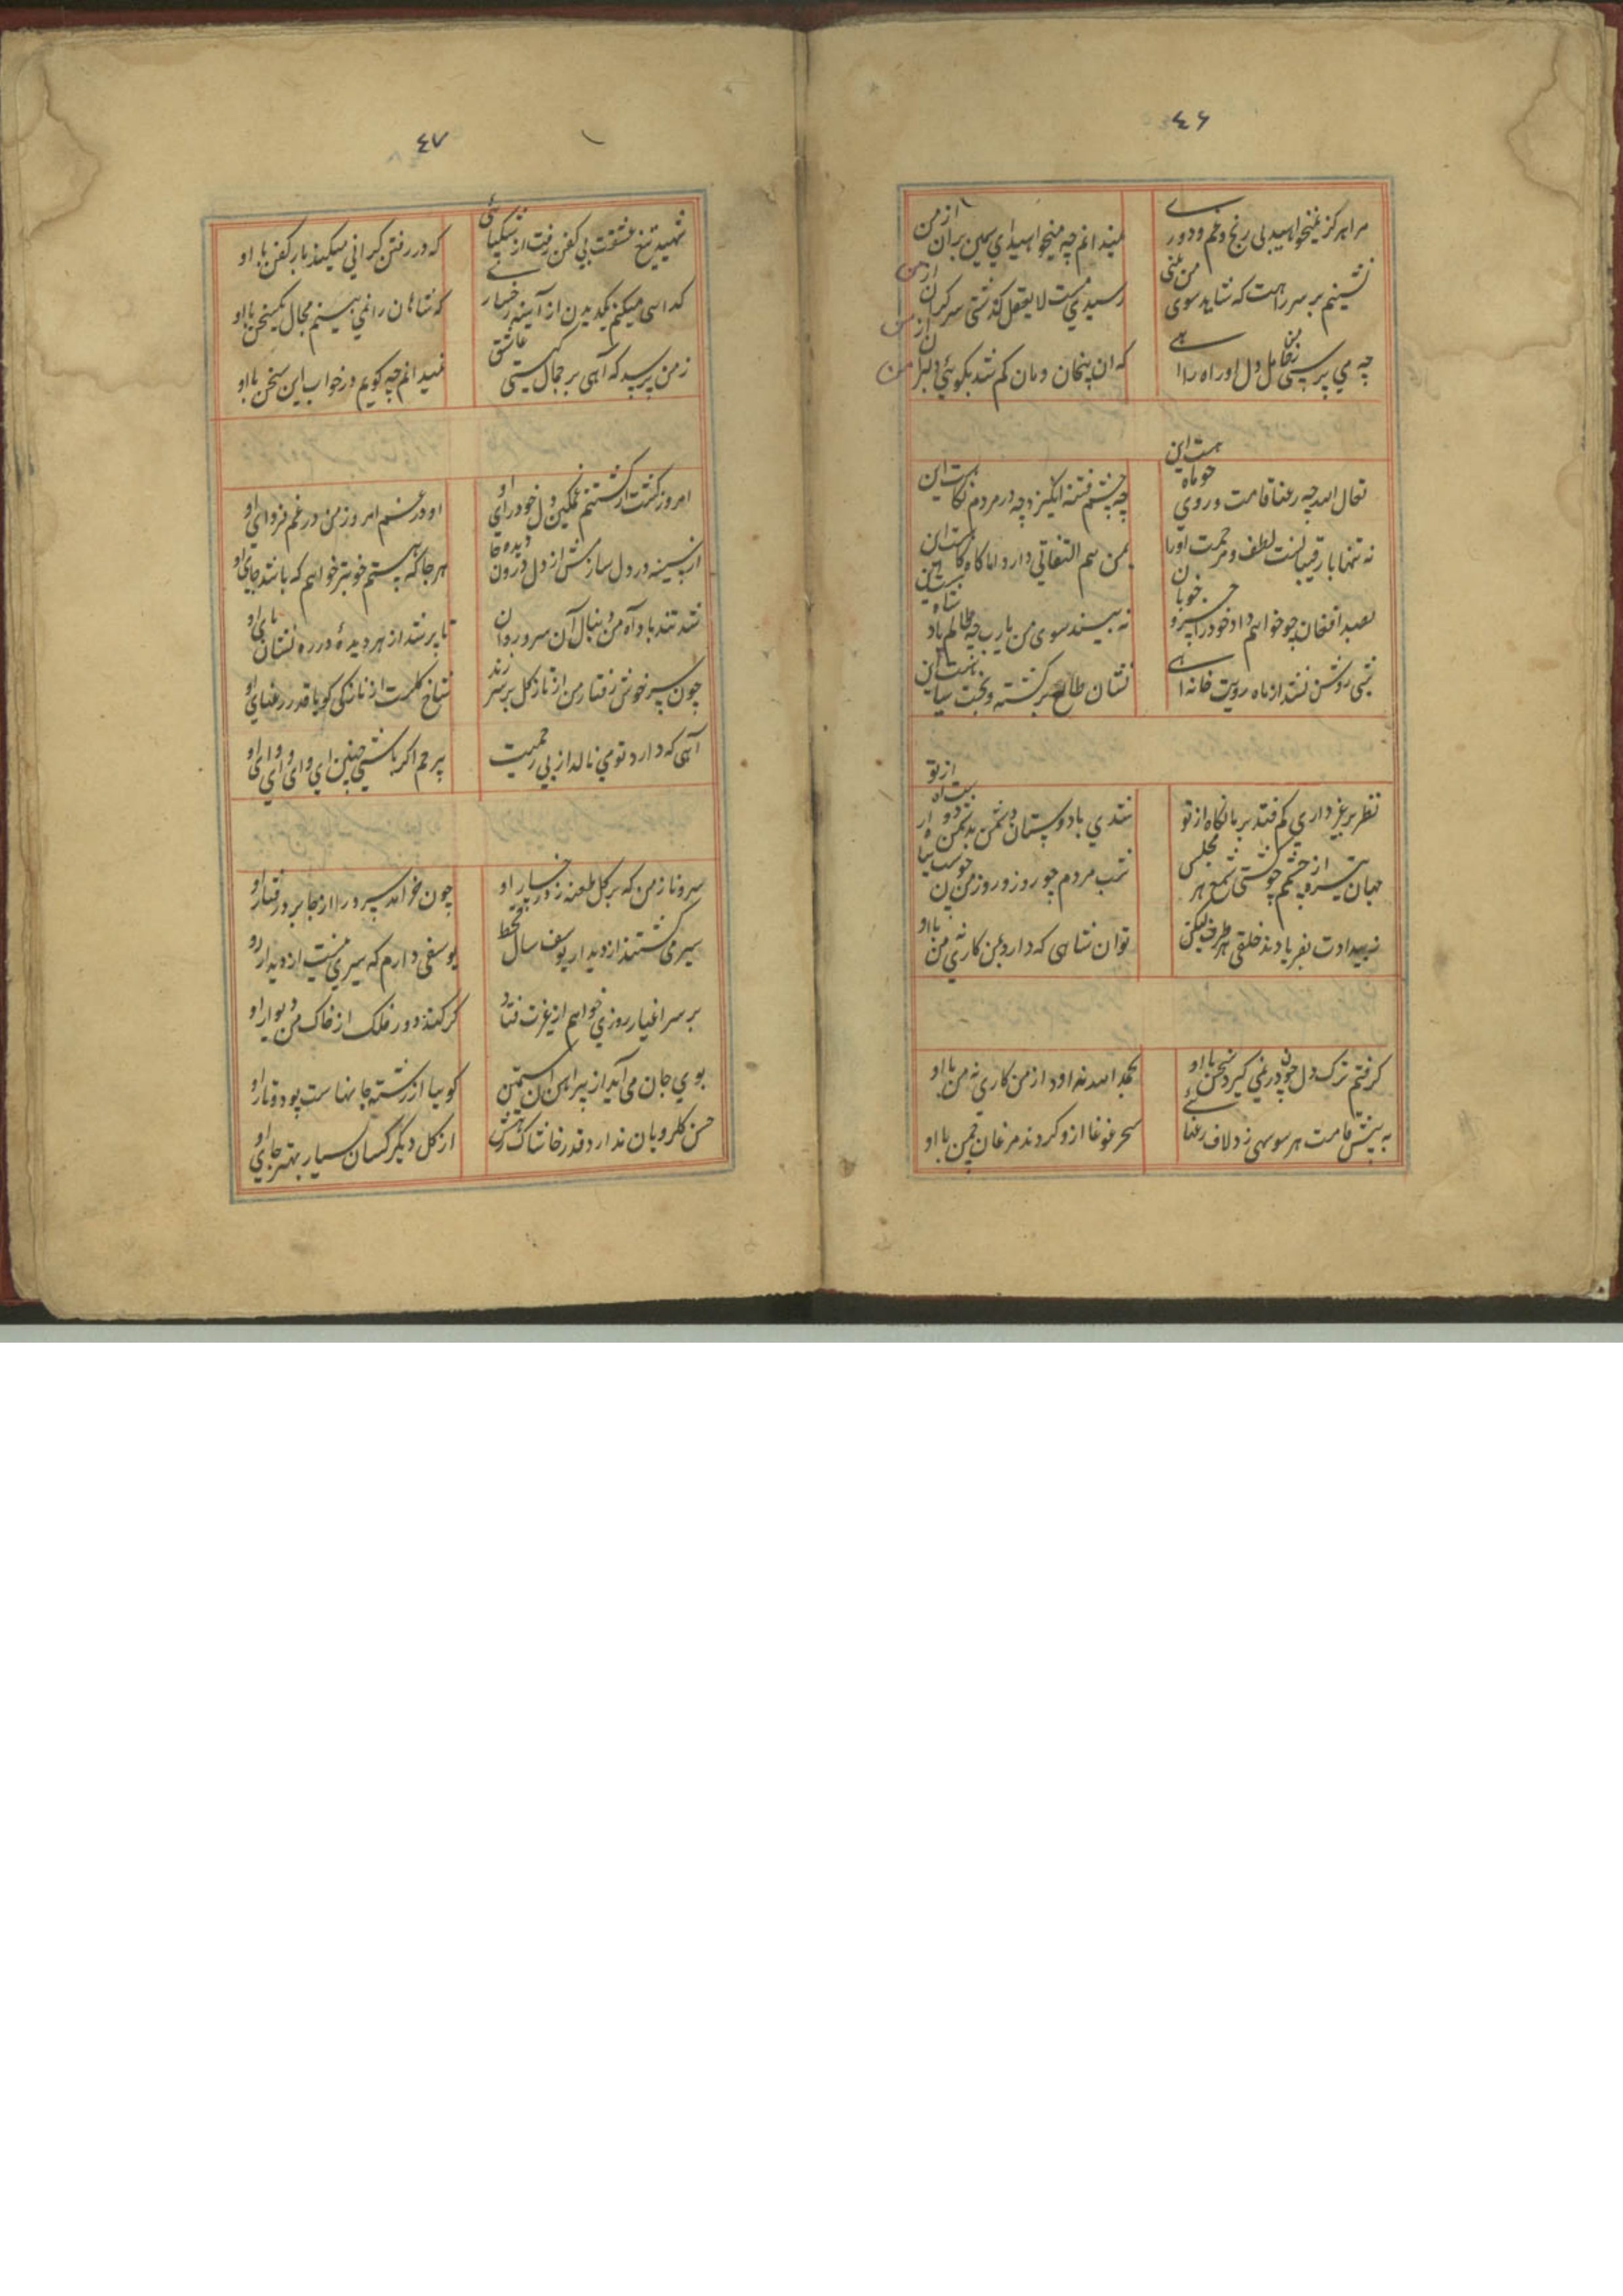 ٤٦
مرا هرگز نمیخواهید بی رنج و غم و دوری
نمیدانم چه میخواهید ای سیمین بران از من
نشینم بر سر راهت که شاید سوی من بینی
رسیدی مست لایعقل گذشتی سرگران از من
چه می پرسی ز من دل او را
که ان پنهان دهان گم شد نگوئی دلبرا از من
تعال الله چه رعنا قامت و روی چو ماهست این
چه چشم فتنه انگیز و چه در مردم نگاهست این
نه تنها با رقیبانست لطف و مرحمت او را
بمن هم التفاتی دارد اما گاه گاهست این
بصد افغان چو خواهم داد خود را خسرو خوبان
نه بیند سوی من یارب چه ظالم پادشاهست این
شبی روشن نشد از ماه رویت خانه ا
نشان طالع برگشته و بخت سیاهست این
نظر بر غیر داری کم فتد بر ما نگاه از تو
شدی با دوستان دشمن بدشمن دوست اه از تو
جهان تیره بچشم از چشم خوشتی شمع هر مجلس
شب مردم چو روز و روز من سیاه از تو
ز بیدادت بفریادند خلقی هر طرف لیکن
توان شاهی که دارد من نه کاری من با او
گرفتم ترک دل چون در نمی گیرد سخن با او
بحمد الله نه او دارد از من کاری نه من با او
به پیش قامتت هر سو سهی زد لاف رعنائی
سحر غوغا ازو کردند مرغان چمن با او
٤٧
شهید تیغ عشقت بی کفن رفت از شکیبائی
که در رفتن گرانی میکند بار کفن با او
گدائی میکنم یکدیدن از آینه رخسار
که شاهان را نمی بینم مجال یکسخن با او
ز من پرسد که آهی بر جمال کیستی عاشق
نمیدانم چه گویم در خواب این سخن با او
امروز گشت از کشتنم غمگین دل خود رای او
او در غم امروز من در غم فردای او
از سینه در دل سازمش از دل درون دیده جا
هر جا که هستم خوشتر خواهم که باشد جای او
شد تند باد آه من دنبال آن سرو روان
تا پر شد از هر دیده در ره نشان پای او
چون سرخوش رفتار من از ناز گل بر سر زند
شاخ گلست از نازکی گویا قد رعنای او
آهی که دارد تو می نالد از بی رحمیت
بیرحم اگر باشی چنین ای وای او ای وای او
سرو ناز من که بر گل طعنه زد رخسار او
چون خرامد سرو را از جا برد رفتار او
سیر می گشتند از دیدار یوسف سال قحط
یوسفی دارم که سیری نیست از دیدار او
بر سر اغیار روزی خواهم از غیرت فتاد
گر کند دور فلک از خاک من دیوار او
بوی جان می آید از پیراهن آن سیمتن
گوییا از رشته جانهاست پود و تار او
حسن گلرویان ندارد قدر خاشاک رهش
از گل دیگر کسان بسیار بهتر جای او